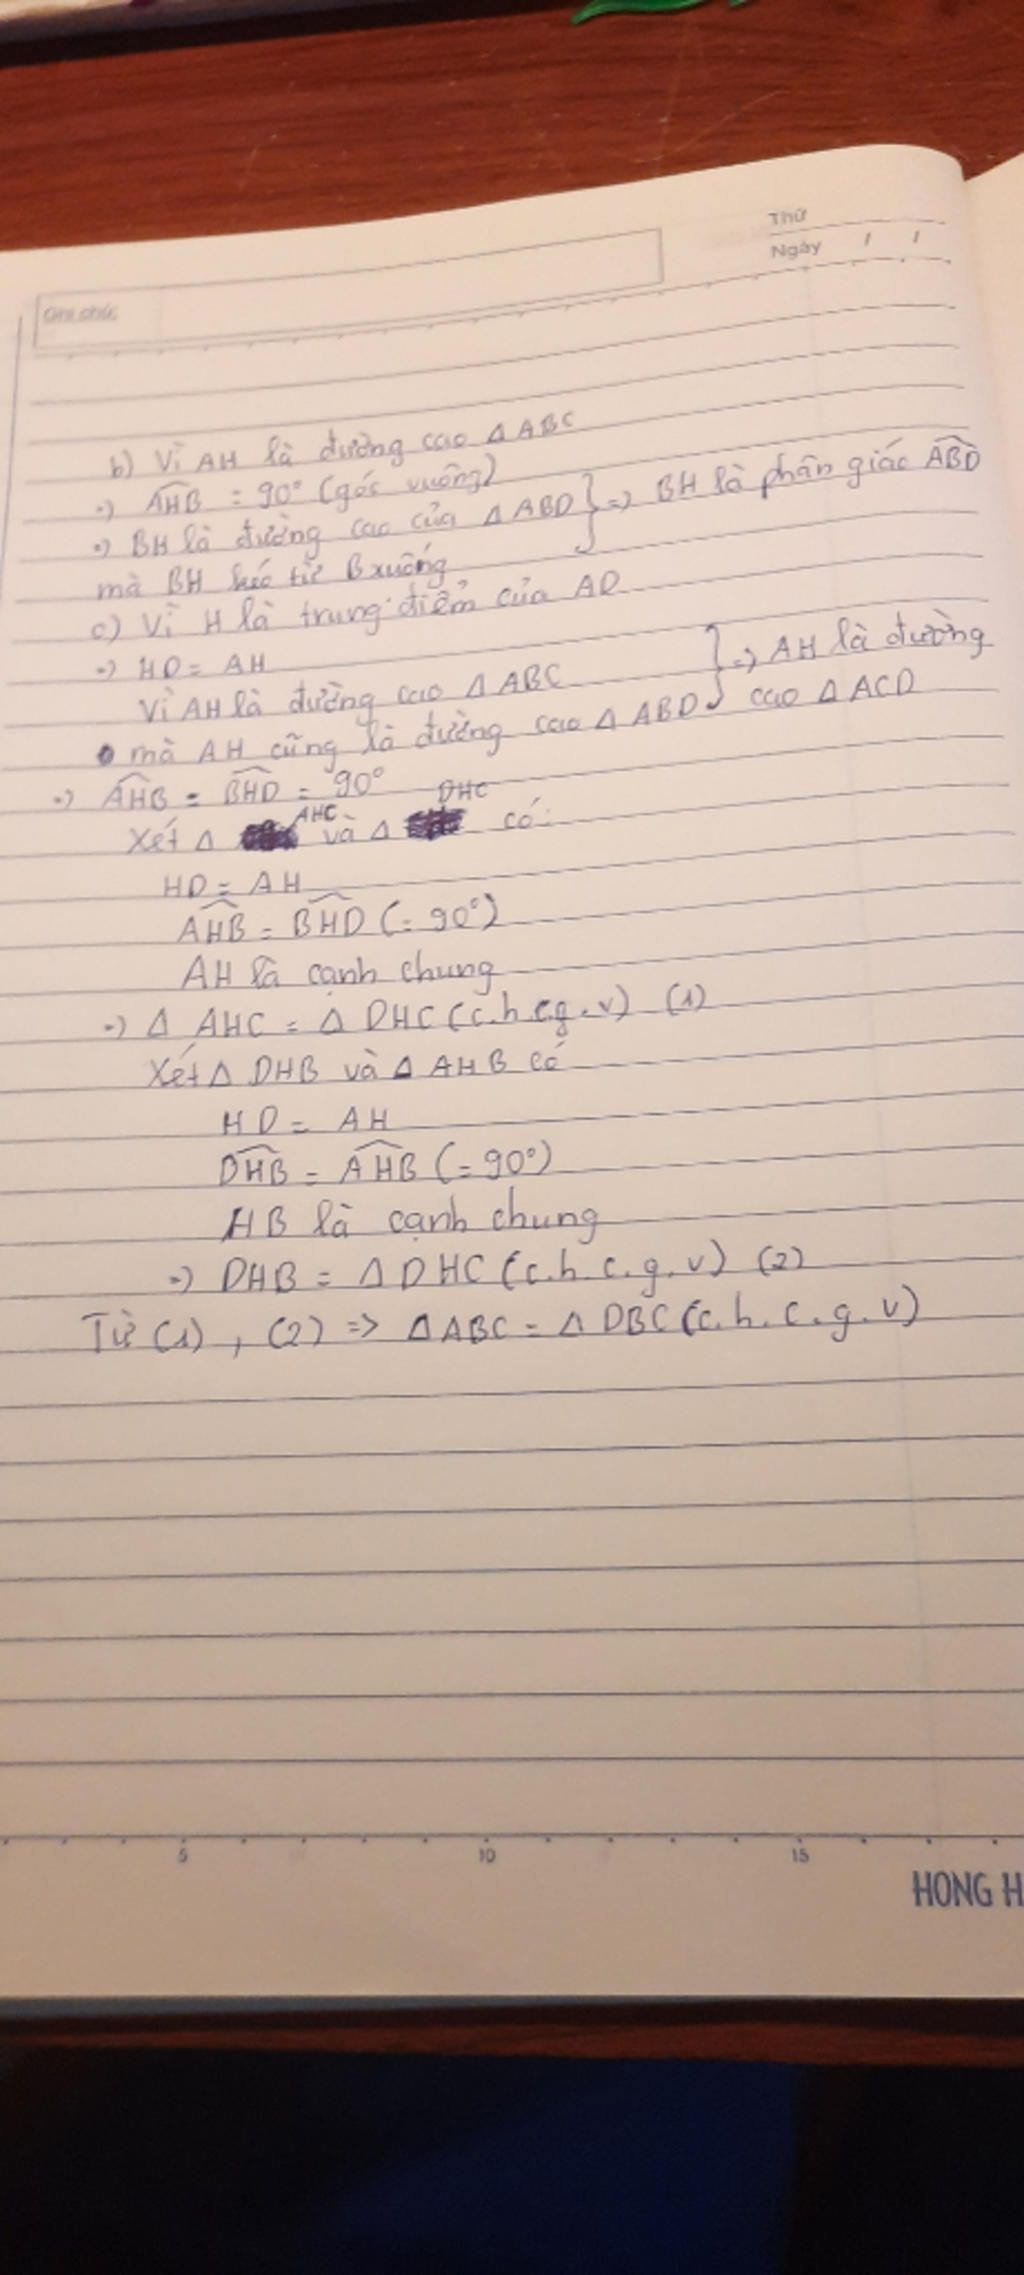 Thứ
Ngày / /
Ghi chú:
b) Vì AH là đường cao Δ ABC
=) AHB = 90° (góc vuông)
=) BH là đường cao của Δ ABD } =) BH là phân giác ABD
mà BH kéo từ B xuống
c) Vì H là trung điểm của AD
=) HD = AH
Vì AH là đường cao Δ ABC } =) AH là đường
mà AH cũng là đường cao Δ ABD cao Δ ACD
=) AHB = BHD = 90°
Xét Δ AHC và Δ DHC có:
HD = AH
AHB = BHD (= 90°)
AH là cạnh chung
=) Δ AHC = Δ DHC (c.h.c.g.v) (1)
Xét Δ DHB và Δ AHB có
HD = AH
DHB = AHB (= 90°)
HB là cạnh chung
=) DHB = Δ DHC (c.h.c.g.v) (2)
Từ (1), (2) => Δ ABC = Δ DBC (c.h.c.g.v)
5 10 15
HONG H